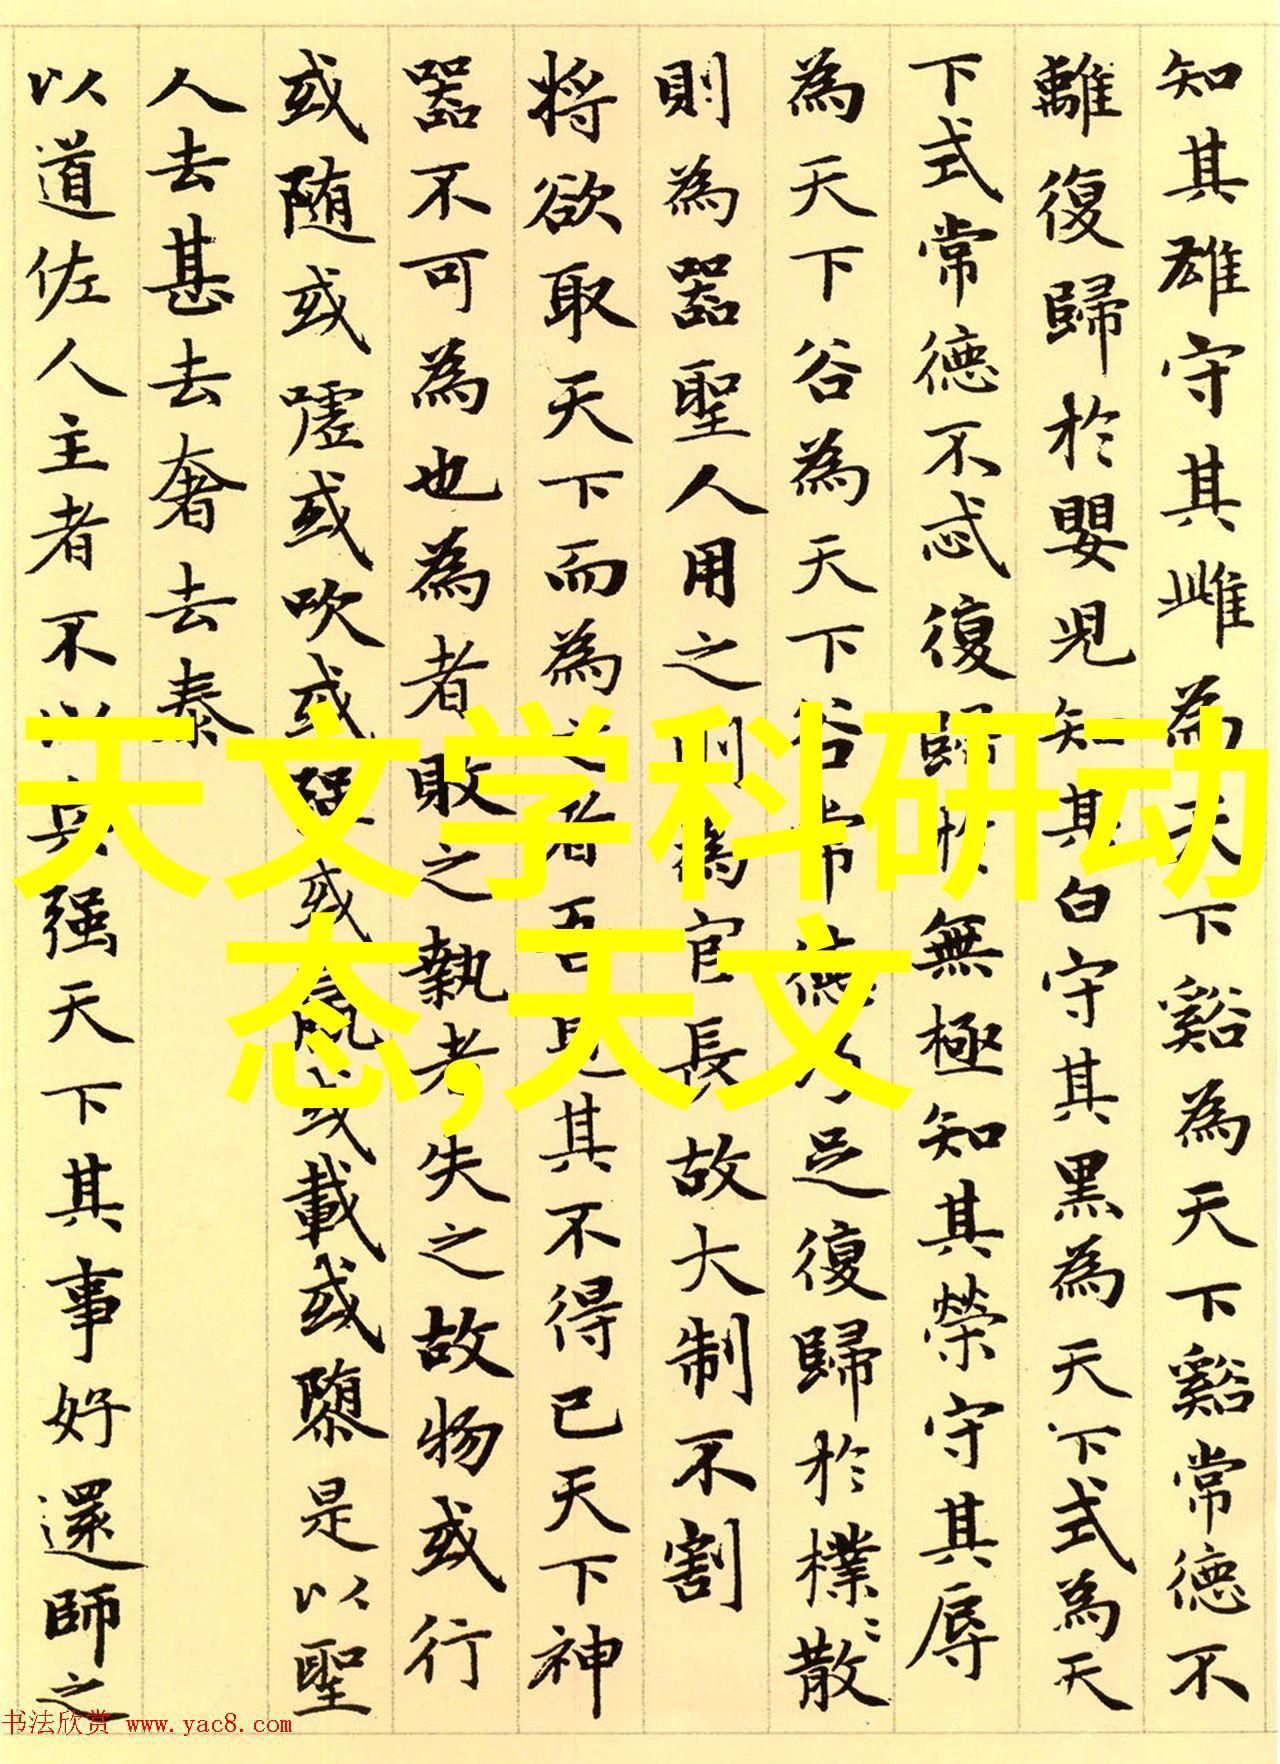 知其雄守其雌為天下谿為天下谿常徳不
離復歸於嬰兒知其白守其黒為天下式為天
下式常徳不忒復歸於無極知其榮守其辱
為天下谷為天下谷常徳乃足復歸於樸〻散
則為器聖人用之則為官長故大制不割
将欲取天下而為之者吾見其不得已天下神
器不可為也為者敗之執者失之故物或行
或随或嘘或吹或强或羸或載或隳是以聖
人去甚去奢去泰
以道佐人主者不以兵强天下其事好還師之
天文学科研动
态,天文
书法欣赏 www.yac8.com